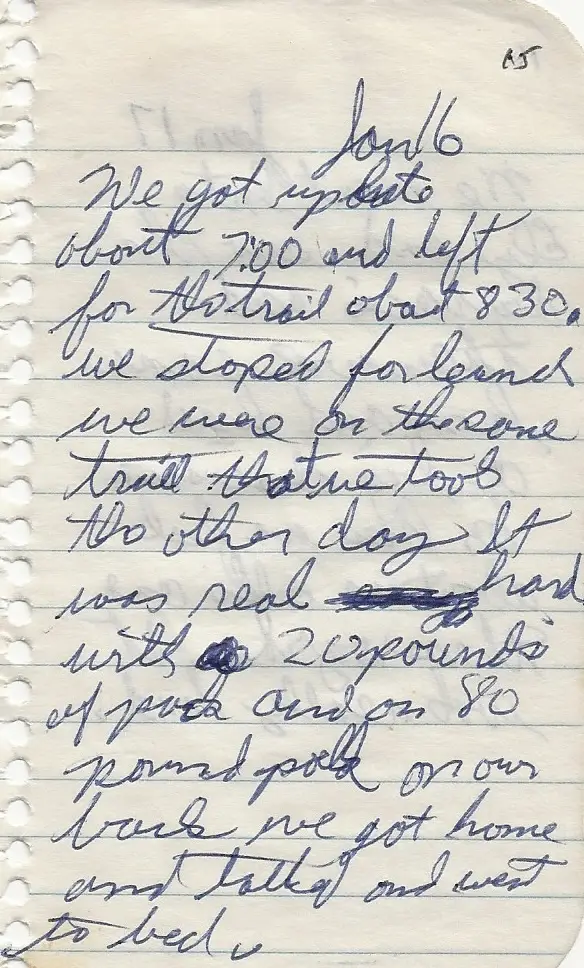 65
Jan 16
We got up late
about 7:00 and left
for the trail obout 830.
we stoped for lunch
we were on the same
trail that we took
the other day It
was real hard
with 20 pounds
of pack and on 80
pound pack on our
back we got home
and talked and went
to bed.